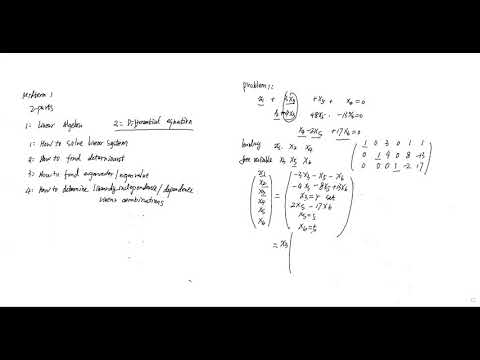 Midterm 1
2-parts
1= Linear Algebra 2= Differential equation
1= How to solve linear system
2= How to find determinant
3= How to find eigenvector/eigenvalue
4= How to determine linearly independence/dependence
linear combinations
problem 1:
x₁ + 3x₃ + x₅ + x₆ = 0
x₂ + 4x₃ + 8x₅ - 13x₆ = 0
x₄ - 2x₅ + 17x₆ = 0
leading x₁ x₂ x₄
free variable x₃ x₅ x₆
1 0 3 0 1 1
0 1 4 0 8 -13
0 0 0 1 -2 17
x₁ -3x₃ - x₅ - x₆
x₂ -4x₃ - 8x₅ + 13x₆
x₃ = x₃ = r set
x₄ 2x₅ - 17x₆
x₅ x₅ = s
x₆ x₆ = t
= x₃